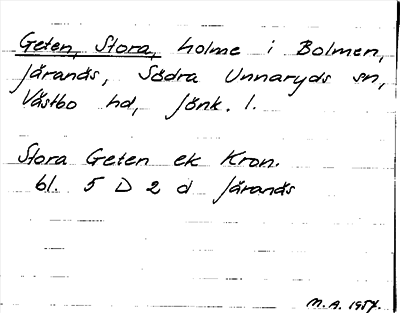 Geten, Stora, holme i Bolmen,
Järanäs, Södra Unnaryds sn,
Västbo hd, Jönk. l.
Stora Geten ek Kron.
bl. 5 D 2 d Järanäs
M.A. 1957.